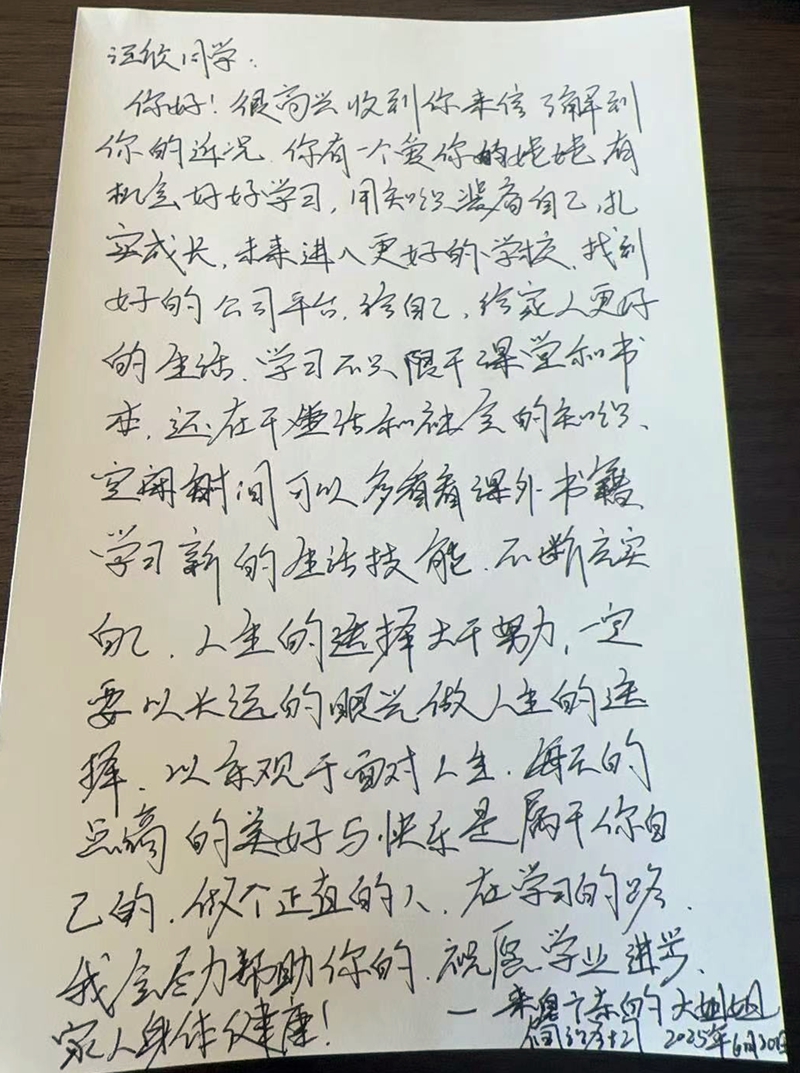 汪欣同学：
你好！很高兴收到你来信了解到
你的近况.你有一个爱你的姥姥有
机会好好学习,用知识装备自己,扎
实成长,未来进入更好的学校,找到
好的公司平台,给自己,给家人更好
的生活.学习不只限于课堂和书
本,还在于生活和社会的知识、
空闲时间可以多看看课外书籍
学习新的生活技能.不断充实
自己.人生的选择大于努力,一定
要以长远的眼光做人生的选
择.以乐观于面对人生.每天的
点滴的美好与快乐是属于你自
己的.做个正直的人.在学习的路.
我会尽力帮助你的.祝愿学业进步、
家人身体健康!
—来自广东的大姐姐
2025年6月30日